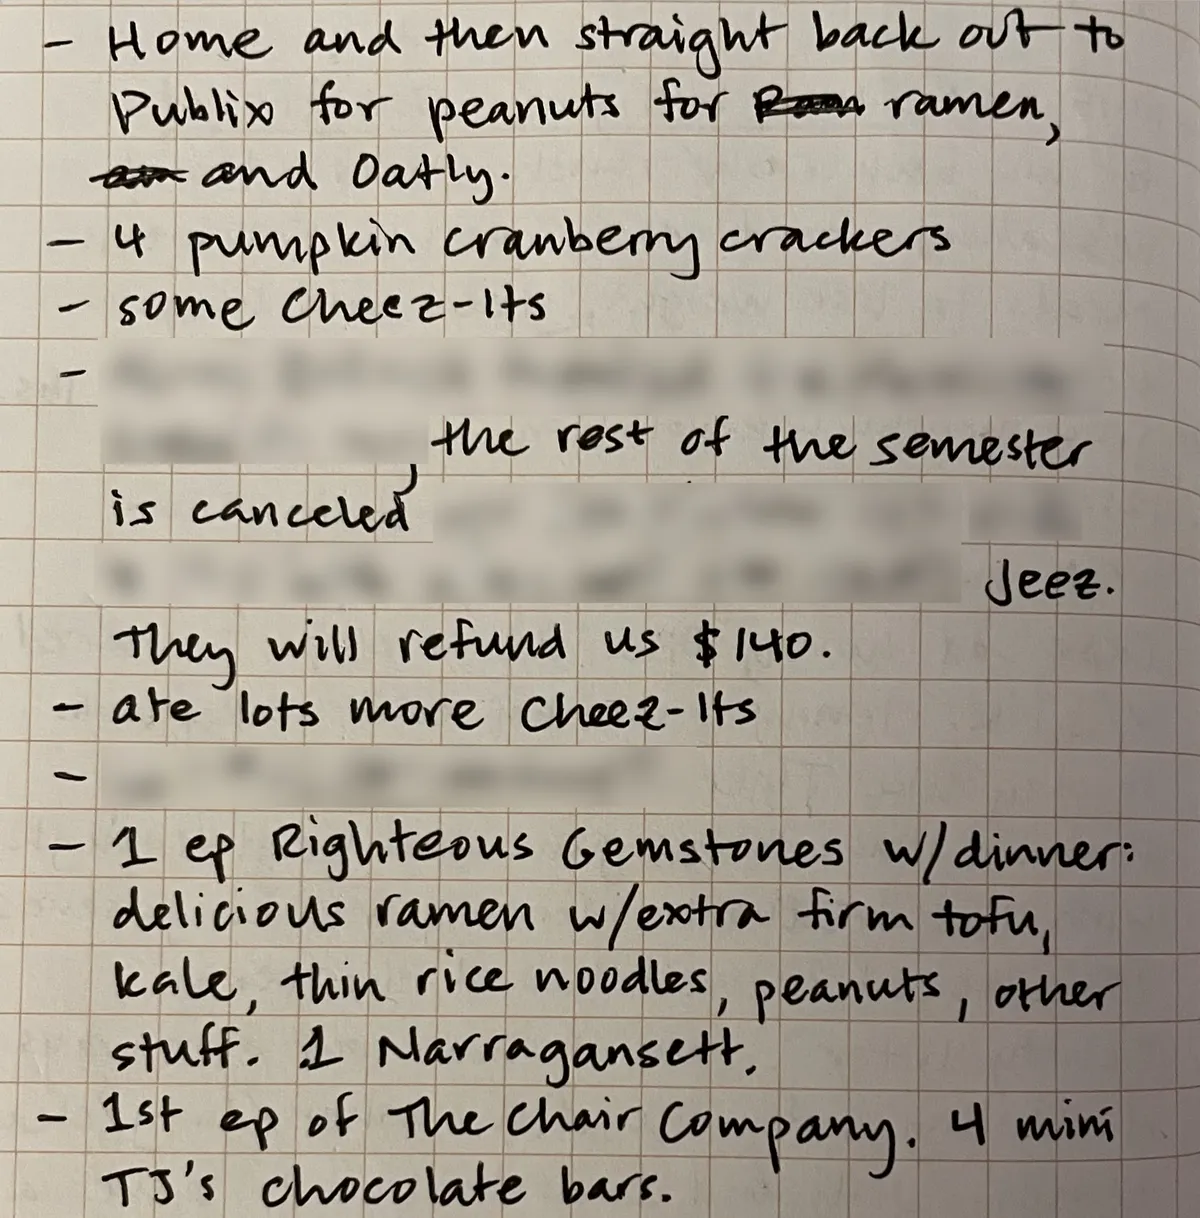 - Home and then straight back out to
Publix for peanuts for ramen,
and Oatly.
- 4 pumpkin cranberry crackers
- some Cheez-Its
-
the rest of the semester
is canceled,
Jeez.
They will refund us $140.
- ate lots more Cheez-Its
-
- 1 ep Righteous Gemstones w/dinner:
delicious ramen w/extra firm tofu,
kale, thin rice noodles, peanuts, other
stuff. 1 Narragansett.
- 1st ep of The Chair Company. 4 mini
TJ's chocolate bars.